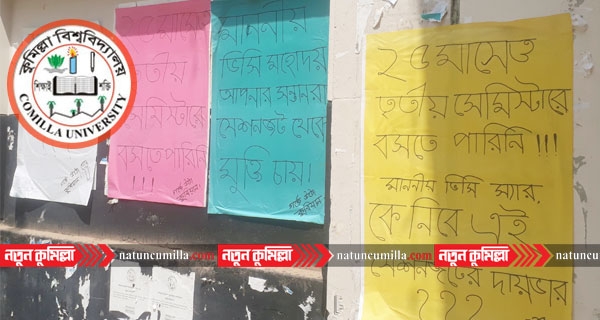 কুমিল্লা বিশ্ববিদ্যালয়
শিক্ষাই
শক্তি
COMILLA UNIVERSITY
২৫ মাসেও
তৃতীয়
সেমিস্টারে
বসতে পারিনি
!!!!
মাননীয়
ভিসি মহোদয়
আপনার সন্তানরা
সেশনজট থেকে
মুক্তি চায়।
২৫ মাসেও
তৃতীয় সেমিস্টারে
বসতে পারিনি !!!
মাননীয় ভিসি স্যার,
কে নিবে এই
সেশনজটের দায়ভার
???
নতুন কুমিল্লা natuncumilla.com নতুন কুমিল্লা natuncumilla.com নতুন কুমিল্লা natuncumilla.com